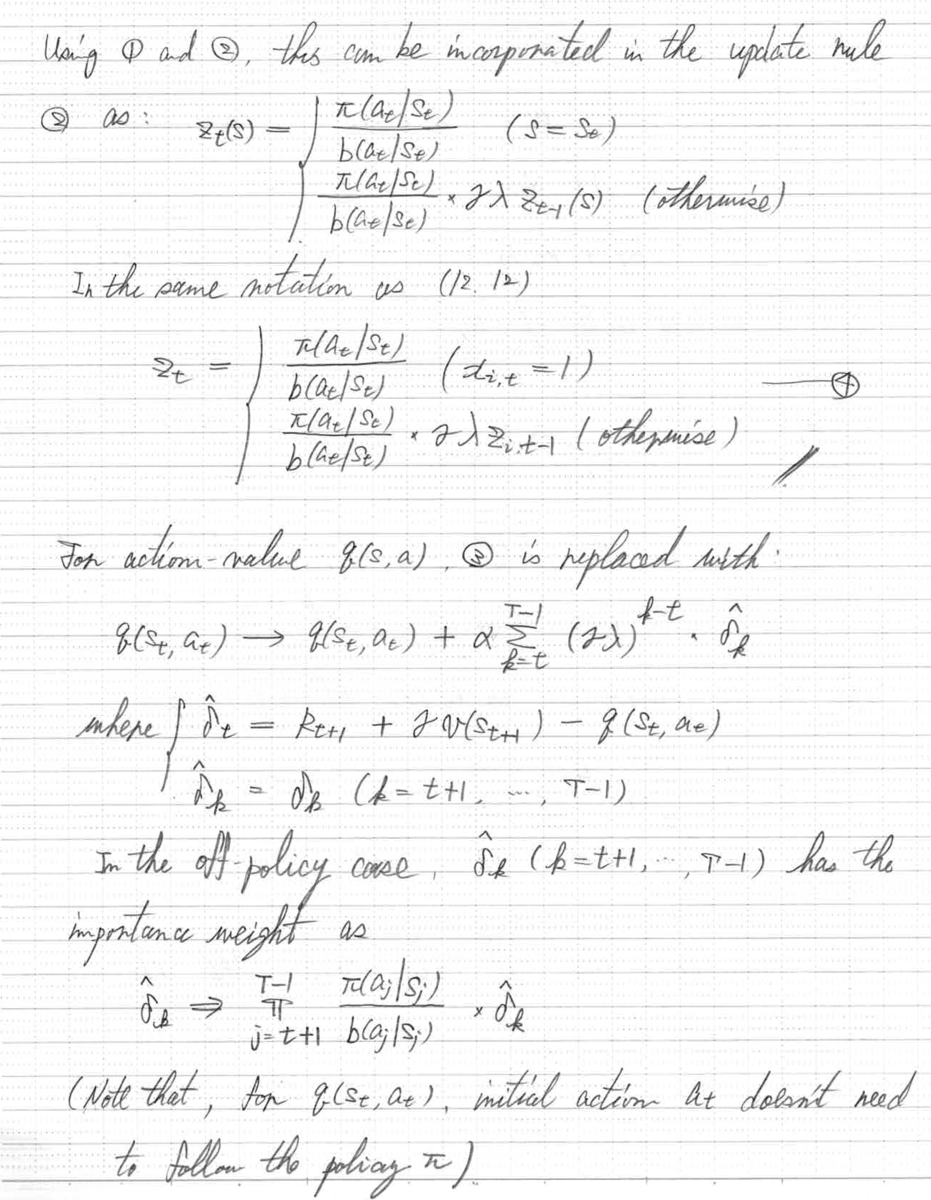 Using ① and ②, this can be incorporated in the update rule
② as: z_t(s) = { π(a_t|s_t) / b(a_t|s_t) (s = s_t)
π(a_t|s_t) / b(a_t|s_t) × γλ z_{t-1}(s) (otherwise)
In the same notation as (12.12)
z_t = { π(a_t|s_t) / b(a_t|s_t) (x_{i,t} = 1)
π(a_t|s_t) / b(a_t|s_t) × γλ z_{i,t-1} (otherwise) —— ④
For action-value q(s,a), ③ is replaced with:
q(s_t, a_t) → q(s_t, a_t) + α Σ_{k=t}^{T-1} (γλ)^{k-t} · δ̂_k
where { δ̂_t = R_{t+1} + γ v(s_{t+1}) − q(s_t, a_t)
δ̂_k = δ_k (k = t+1, …, T−1)
In the off-policy case, δ̂_k (k=t+1, …, T−1) has the
importance weight as
δ̂_k ⇒ Π_{j=t+1}^{T-1} π(a_j|s_j) / b(a_j|s_j) × δ̂_k
(Note that, for q(s_t, a_t), initial action a_t doesn't need
to follow the policy π)